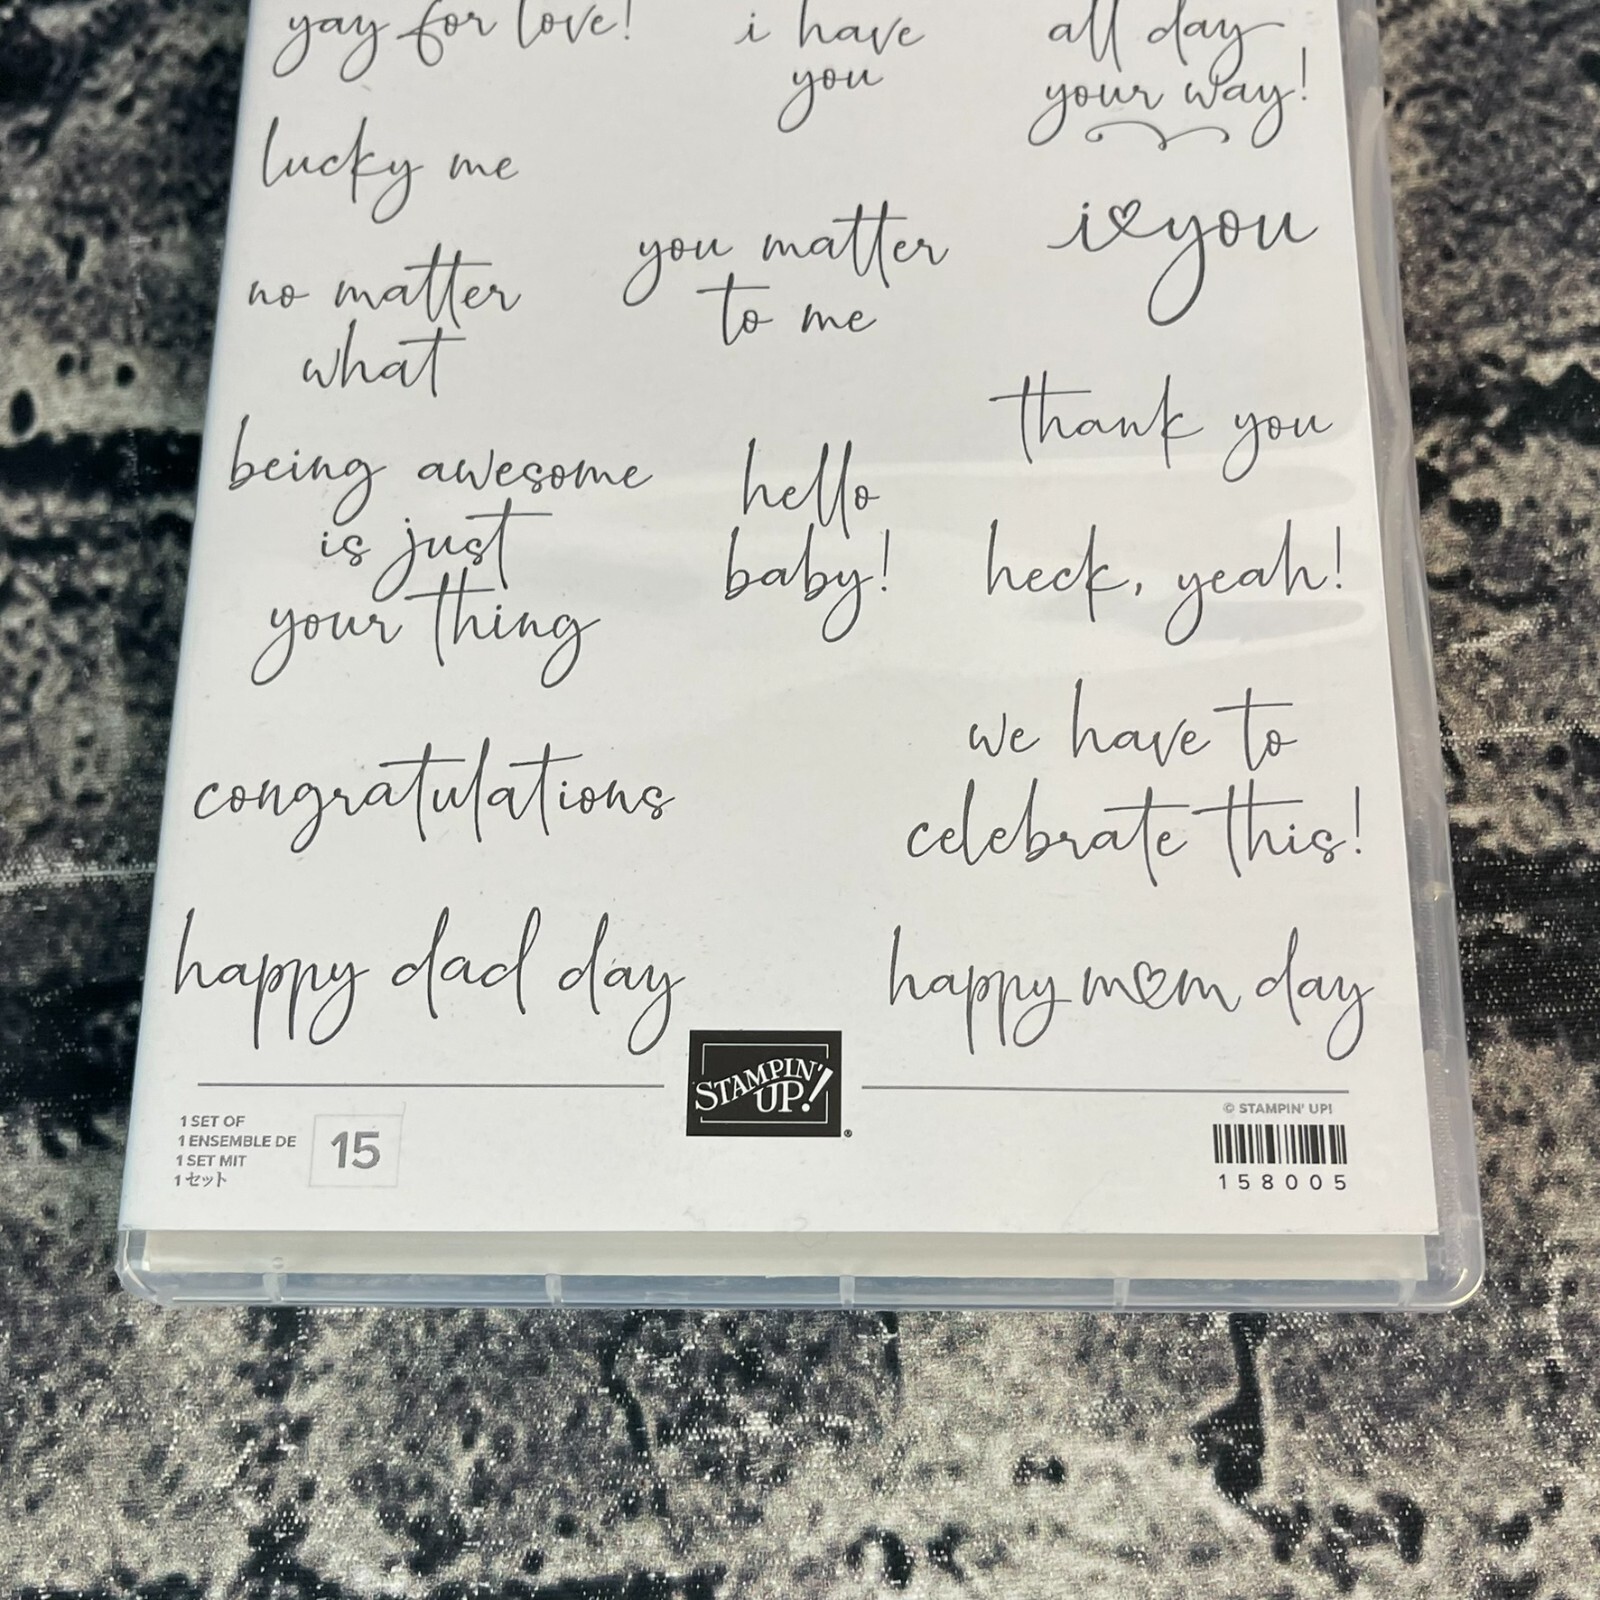 yay for love!
i have
you
all day
your way!
lucky me
no matter
what
you matter
to me
i♡you
being awesome
is just
your thing
hello
baby!
thank you
heck, yeah!
congratulations
we have to
celebrate this!
happy dad day
happy mom day
STAMPIN'
UP!®
1 SET OF
1 ENSEMBLE DE
1 SET MIT
1セット
15
© STAMPIN' UP!
158005